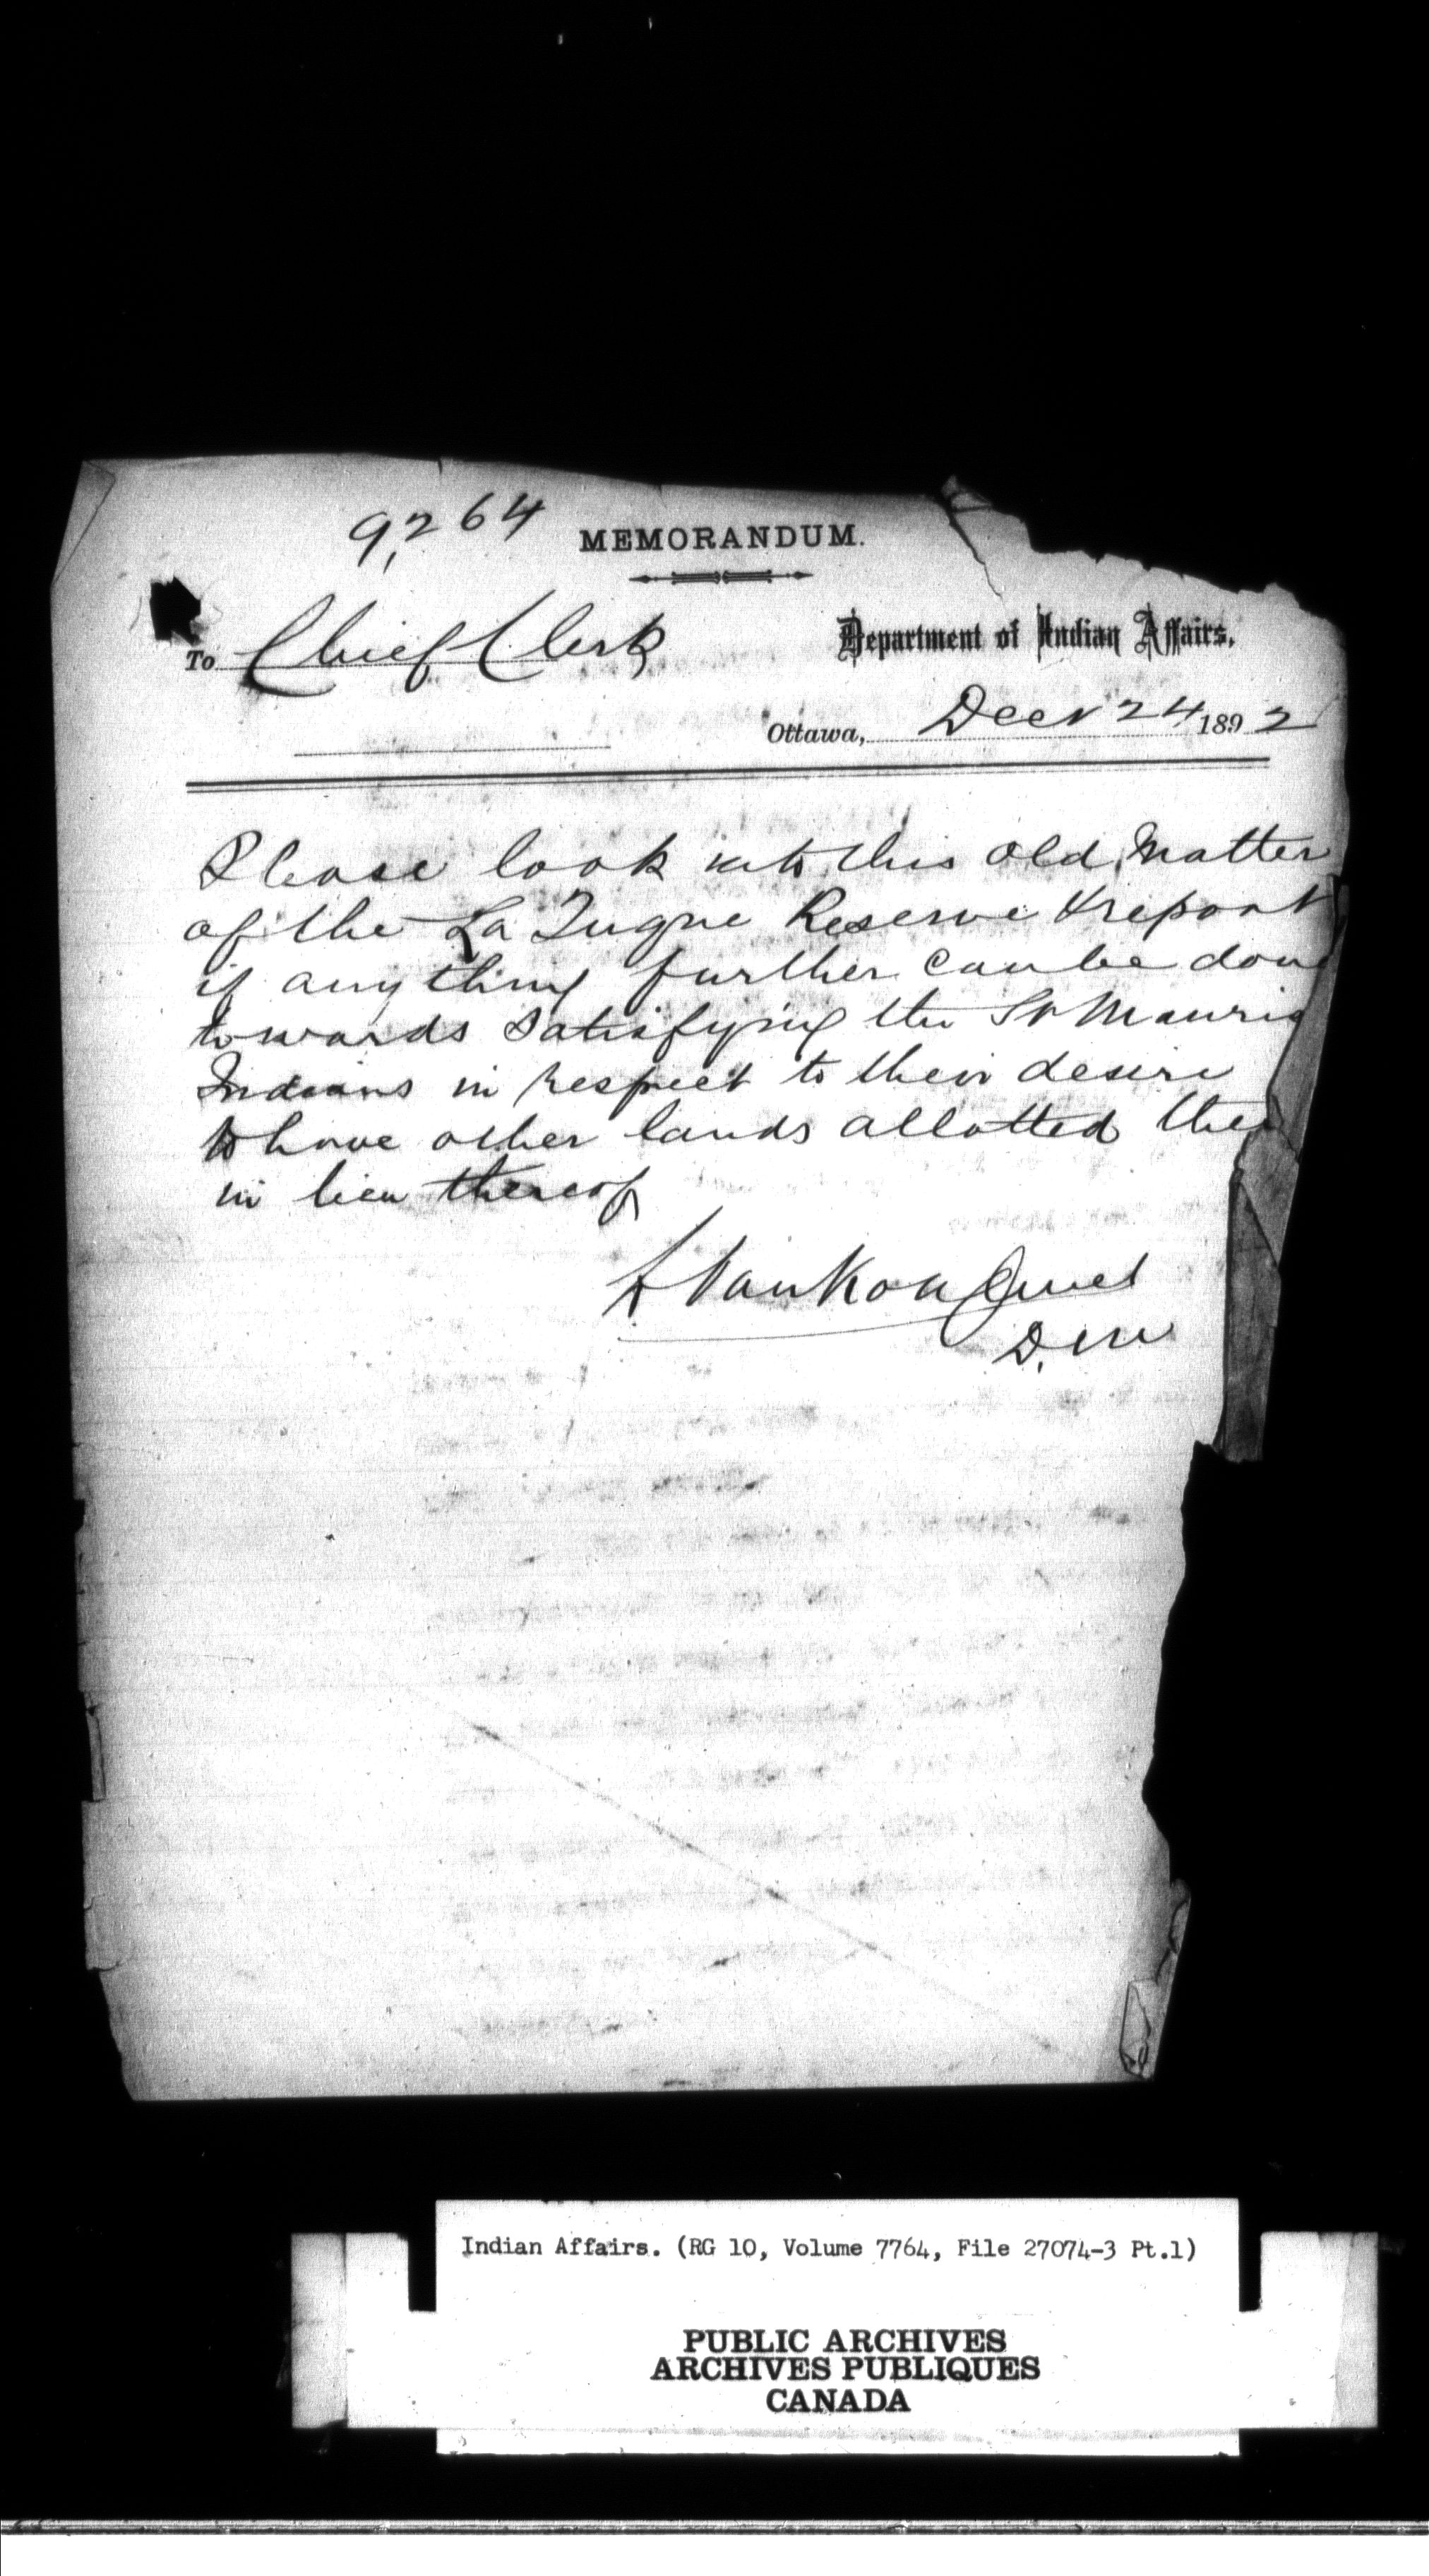 9,264
MEMORANDUM.
To Chief Clerk
Department of Indian Affairs.
Ottawa, Decr 24 1892
Please look into this old matter
of the La Tuque Reserve & report
if anything further can be done
towards satisfying the St Mauric
Indians in respect to their desire
to have other lands allotted the
in lieu thereof
L VanKoughnet
D.M
Indian Affairs. (RG 10, Volume 7764, File 27074-3 Pt.1)
PUBLIC ARCHIVES
ARCHIVES PUBLIQUES
CANADA